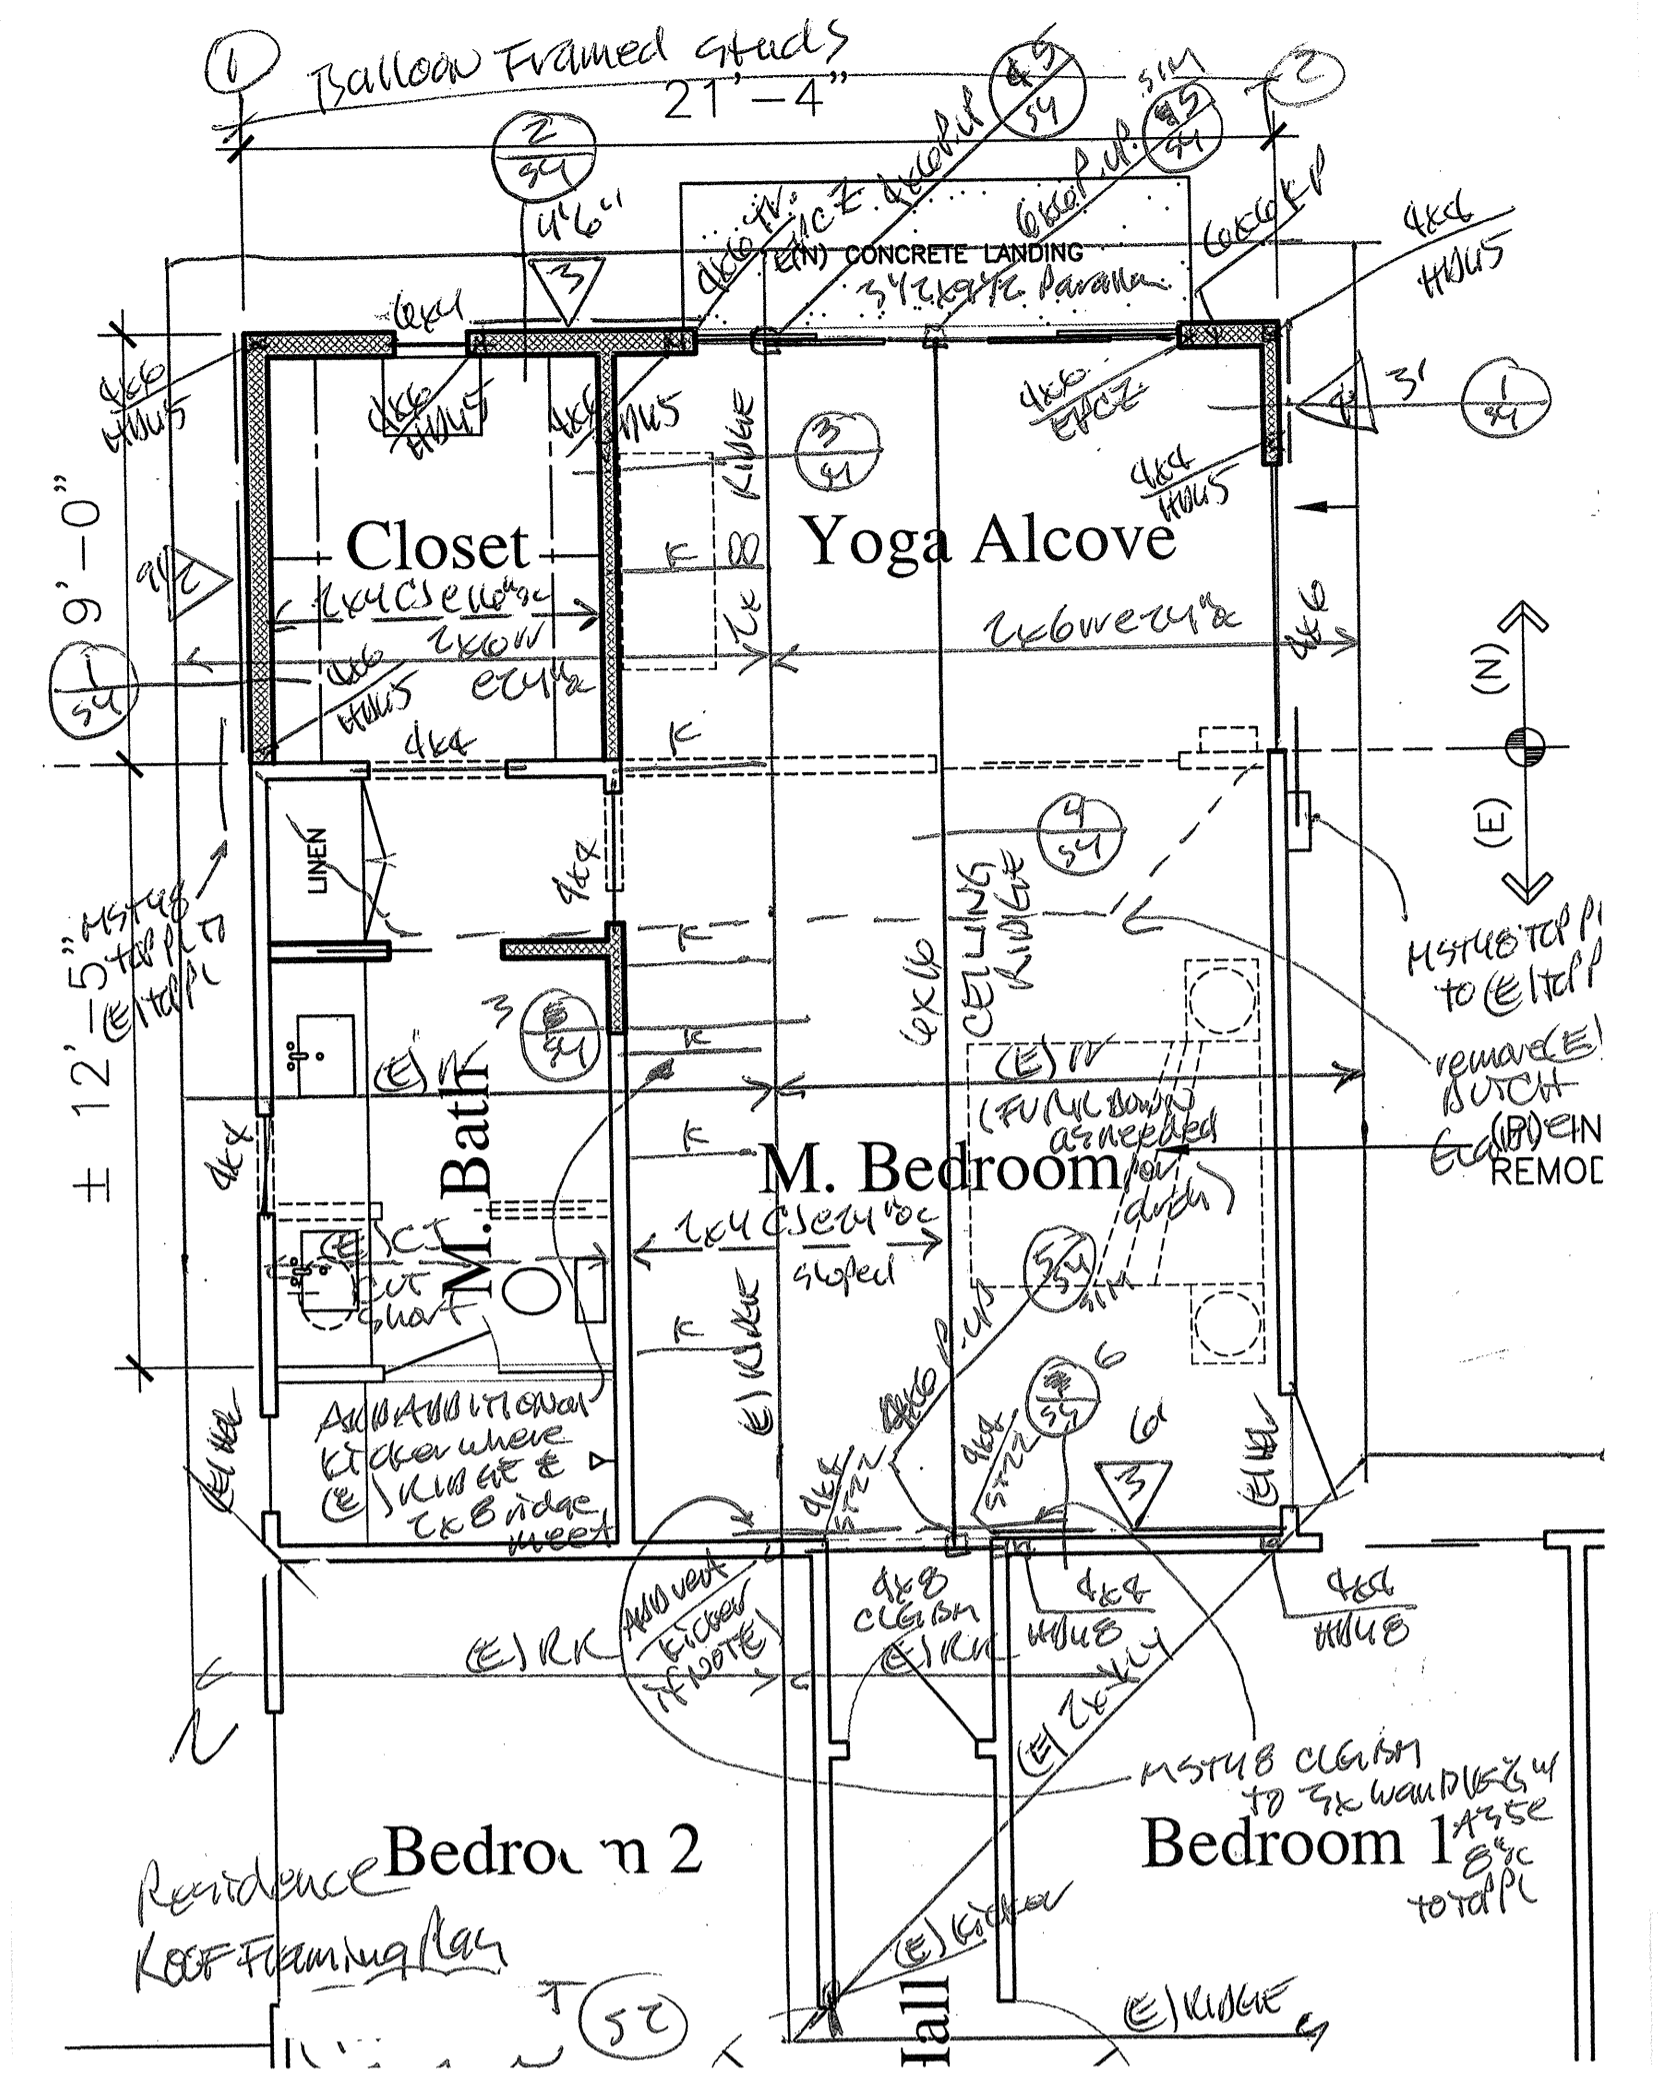 1
Balloon Framed Studs
2
21'-4"
2
S4
5
S4
SIM
S4
4'6"
3
4x6 P.UP
6x6 P.UP.
6x6 KP
4x4
HDU5
(N) CONCRETE LANDING
3 1/2 x 9 1/2 Parallam
6x4
4x6
HDU5
4x6
HDU5
4x6
HDU5
4x6
4x4
HDU5
3'
1
S4
3
S4
2x8 RIDGE
9'-0"
Closet
Yoga Alcove
K
2x4 CJ @ 16"oc
2x6 rr
@24"oc
2x6 rr @ 24"oc
4x6
1
S4
4x6
HDU5
4x4
K
(N)
(E)
LINEN
4x4
4
S4
CEILING
RIDGE
6x16
MST48
top PL to
(E) top PL
MST48 TOP PL
to (E) TOP P
remove (E)
DUTCH
REMOD
± 12'-5"
K
3
S4
K
(E) rr
(E) rr
(FURR DOWN
as needed
for
ducts)
4x4
M. Bath
K
M. Bedroom
2x4 CJ @ 24"oc
sloped
(E) CJ
CUT
short
K
(E) RIDGE
5
S4
SIM
4x6 P.UP
6
S4
4x8
ST22
4x4
ST22
6'
3
(E) Hdr
(E) Hdr
ADD ADDITIONAL
kicker where
(E) RIDGE &
2x8 ridge
meet
ADD vert
kicker
if NOTE)
4x8
CLG BM
4x4
HDU8
4x4
HDU8
(E) RR
(E) RR
(E) 2x
MST48 CLG BM
to 3x wall
A35 @
8"oc
to top PL
Bedroom 2
Bedroom 1
Residence
Roof Framing Plan
(E) kicker
(E) RIDGE
Hall
S2